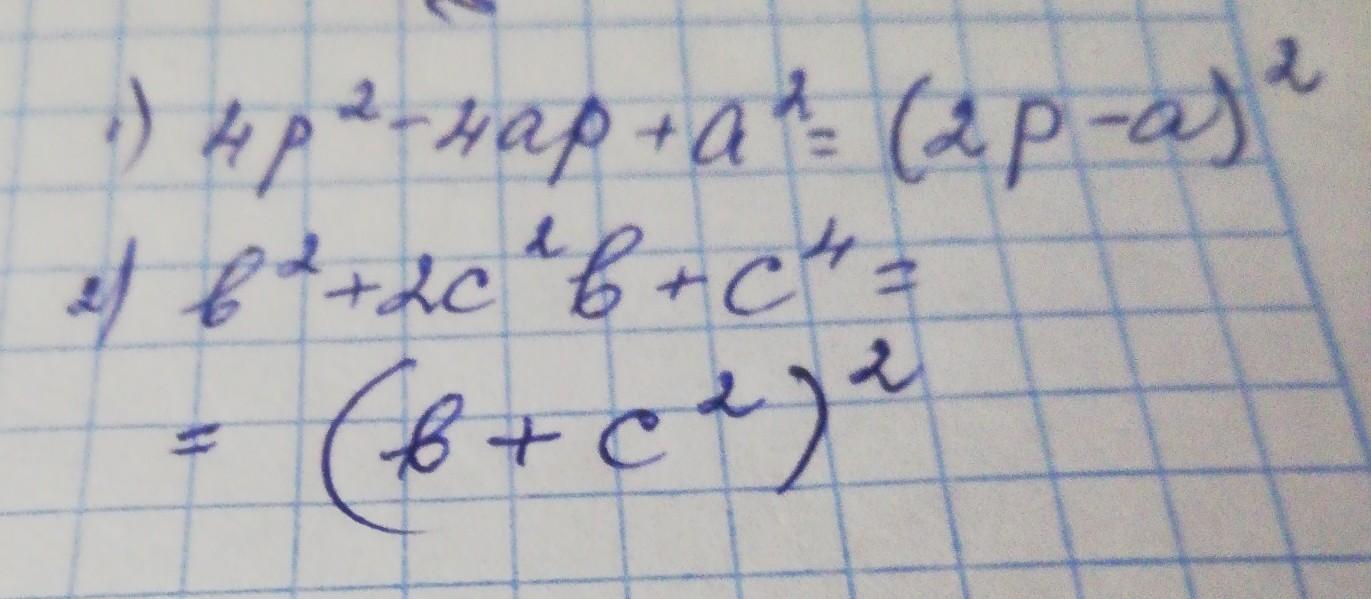 1) 4p² - 4ap + a² = (2p - a)²
2) b² + 2c²b + c⁴ =
= (b + c²)²